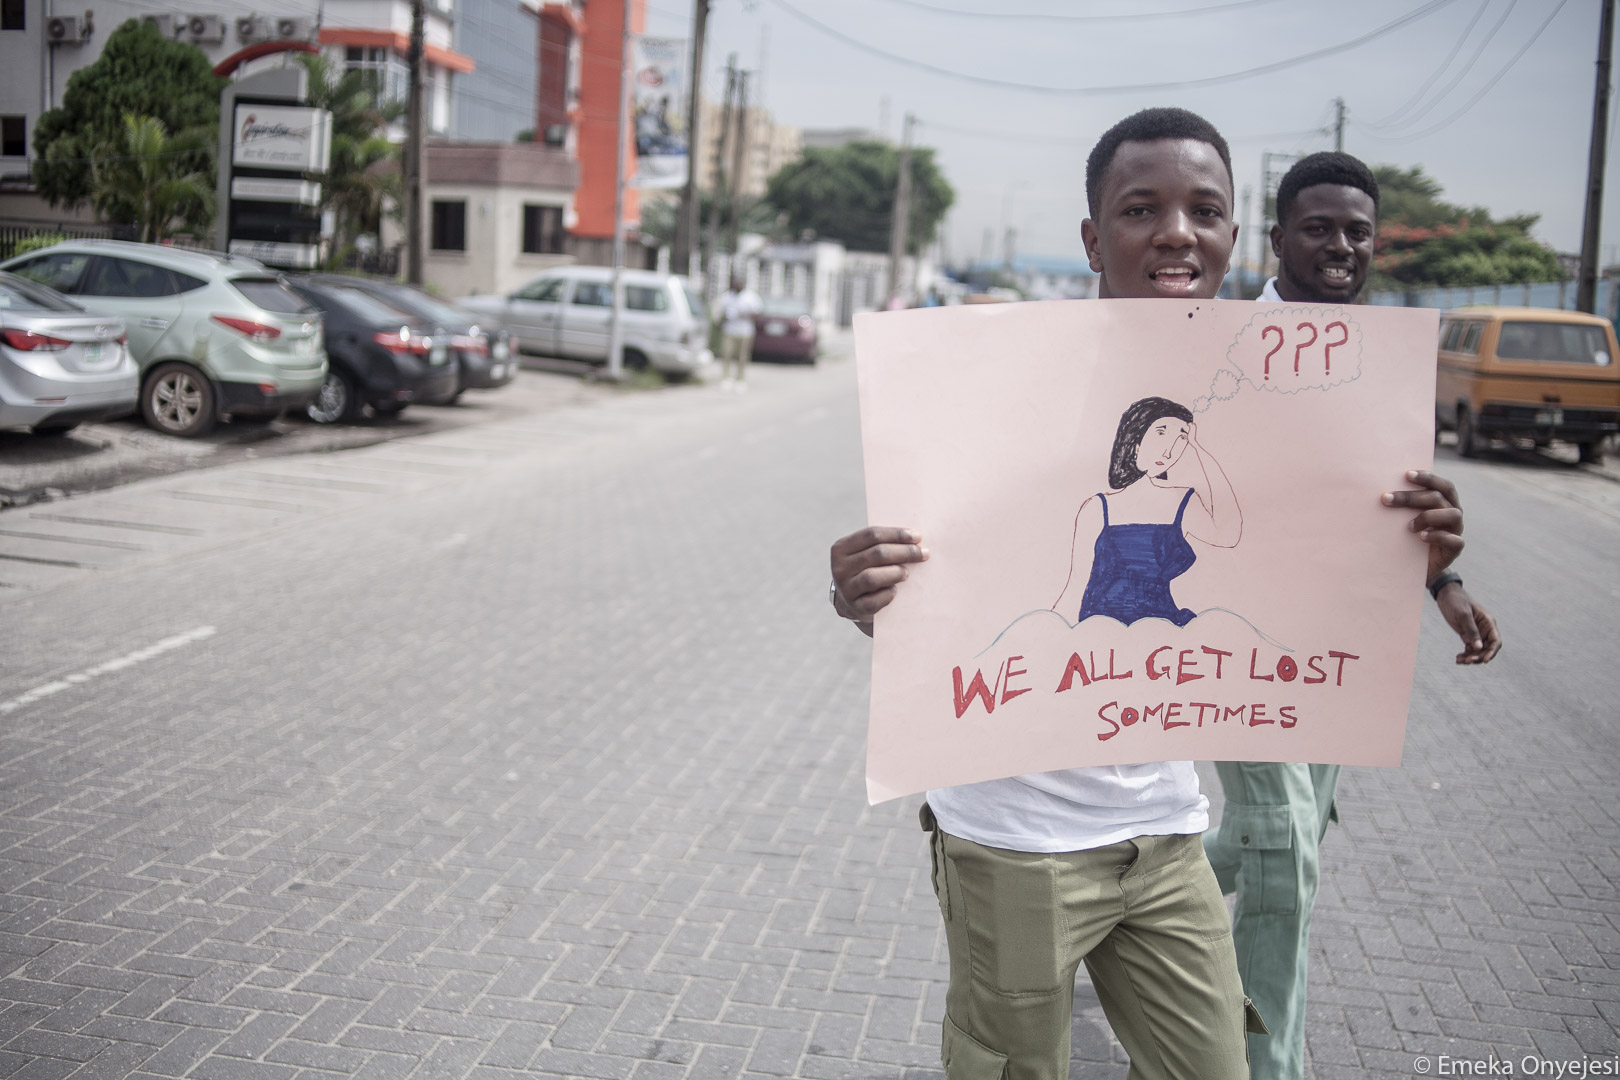 ???
WE ALL GET LOST
SOMETIMES
© Emeka Onyejesi